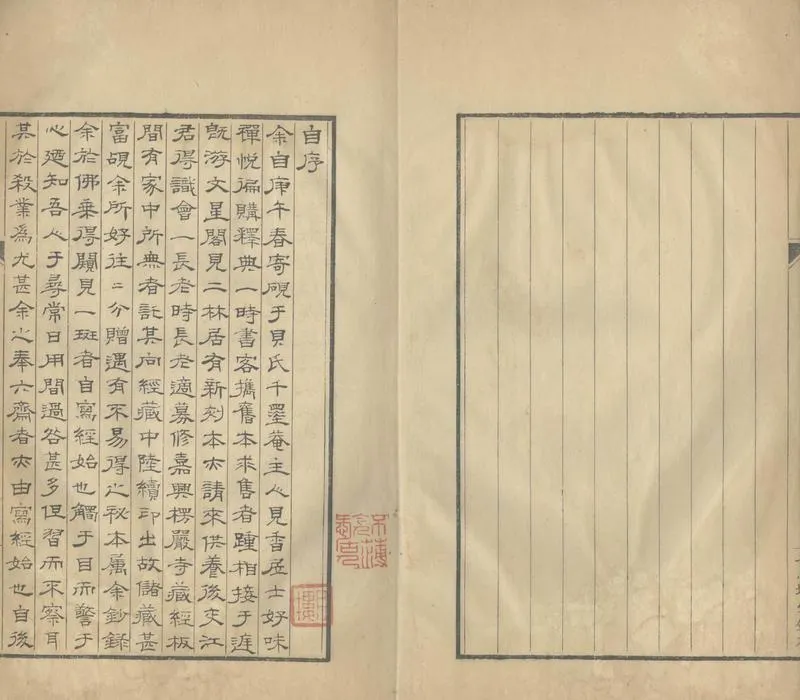 自序
余自庚午春寄硯于貝氏千墨菴主心見香居士好味
禪悅徧購釋典一時書客攜舊本求售者踵相接于涯
旣游文星閣見二林居有新刻本亦請來供養後交江
君得識會一長老時長老適募修嘉興楞嚴寺藏經板
間有家中所無者託其向經藏中陸續印出故儲藏甚
富覘余所好往〻分贈遇有不易得之秘本屬余鈔錄
余於佛乘得闚見一斑者自寫經始也觸于目而警于
心廼知吾心于尋常日用間過咎甚多但習而不察耳
其於殺業爲尤甚余之奉六齋者亦由寫經始也自後